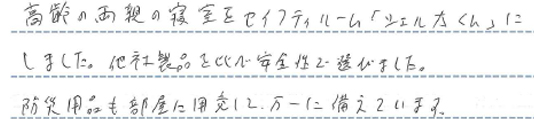 高齢の両親の寝室をセイフティルーム「シェル太くん」に
しました。他社製品と比べ安全性で選びました。
防災用品も部屋に用意して、万一に備えています。